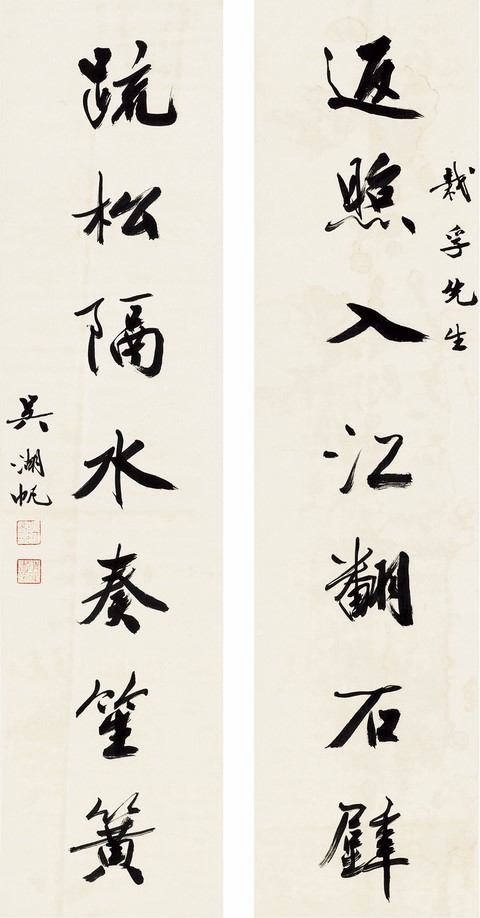 栽孚先生
返照入江翻石壁
疏松隔水奏笙簧
吳湖帆